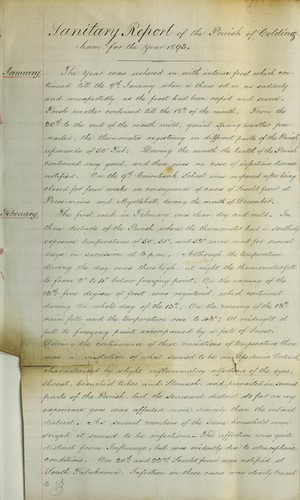 Sanitary Report of the Parish of Colding-
ham for the Year 1893.
January. The Year was ushered in with intense frost which con-
tinued till the 9th January when a thaw set in as suddenly
and unexpectedly as the frost had been rapid and severe.
Fresh weather continued till the 17th of the month. From the
20th to the end of the month mild, genial spring weather pre-
vailed, the thermometer registering in different parts of the Parish
upwards of 50° Fah: During the month the health of the Parish
continued very good, and there was no case of infectious disease
notified. On the 9th School was reopened after being
closed for four weeks in consequence of cases of Scarlet fever at
and during the month of December.
February. The first week in February was clear dry and mild. In
three districts of the Parish where the thermometer had a Southerly
exposure temperatures of 50°, 55°, and 58° were noted for several
days in succession at 3 p.m.; Although the temperature
during the day was thus high, at night the thermometer fell
to from 2° to 4° below freezing point. On the evening of the
12th five degrees of frost were registered, which continued
during the whole day of the 13th. On the evening of the 18th
rain fell and the temperature rose to 48°: at midnight it
fell to freezing point accompanied by a fall of Snow.
During the continuance of these variations of temperature there
was a visitation of what seemed to be an Epidemic Catarrh,
characterised by slight inflammatory affections of the eyes,
throat, bronchial tubes and stomach, and prevailed in several
parts of the Parish, but the Seacoast district so far as my
experience goes was affected more severely than the inland
district. As several members of the same household were
seized it seemed to be infectious. The affection was quite
distinct from Influenza, but was evidently due to atmospheric
conditions. On 20th and 22nd Scarlet fever was notified at
South Falaknowe. Infection in these cases was clearly traced
to